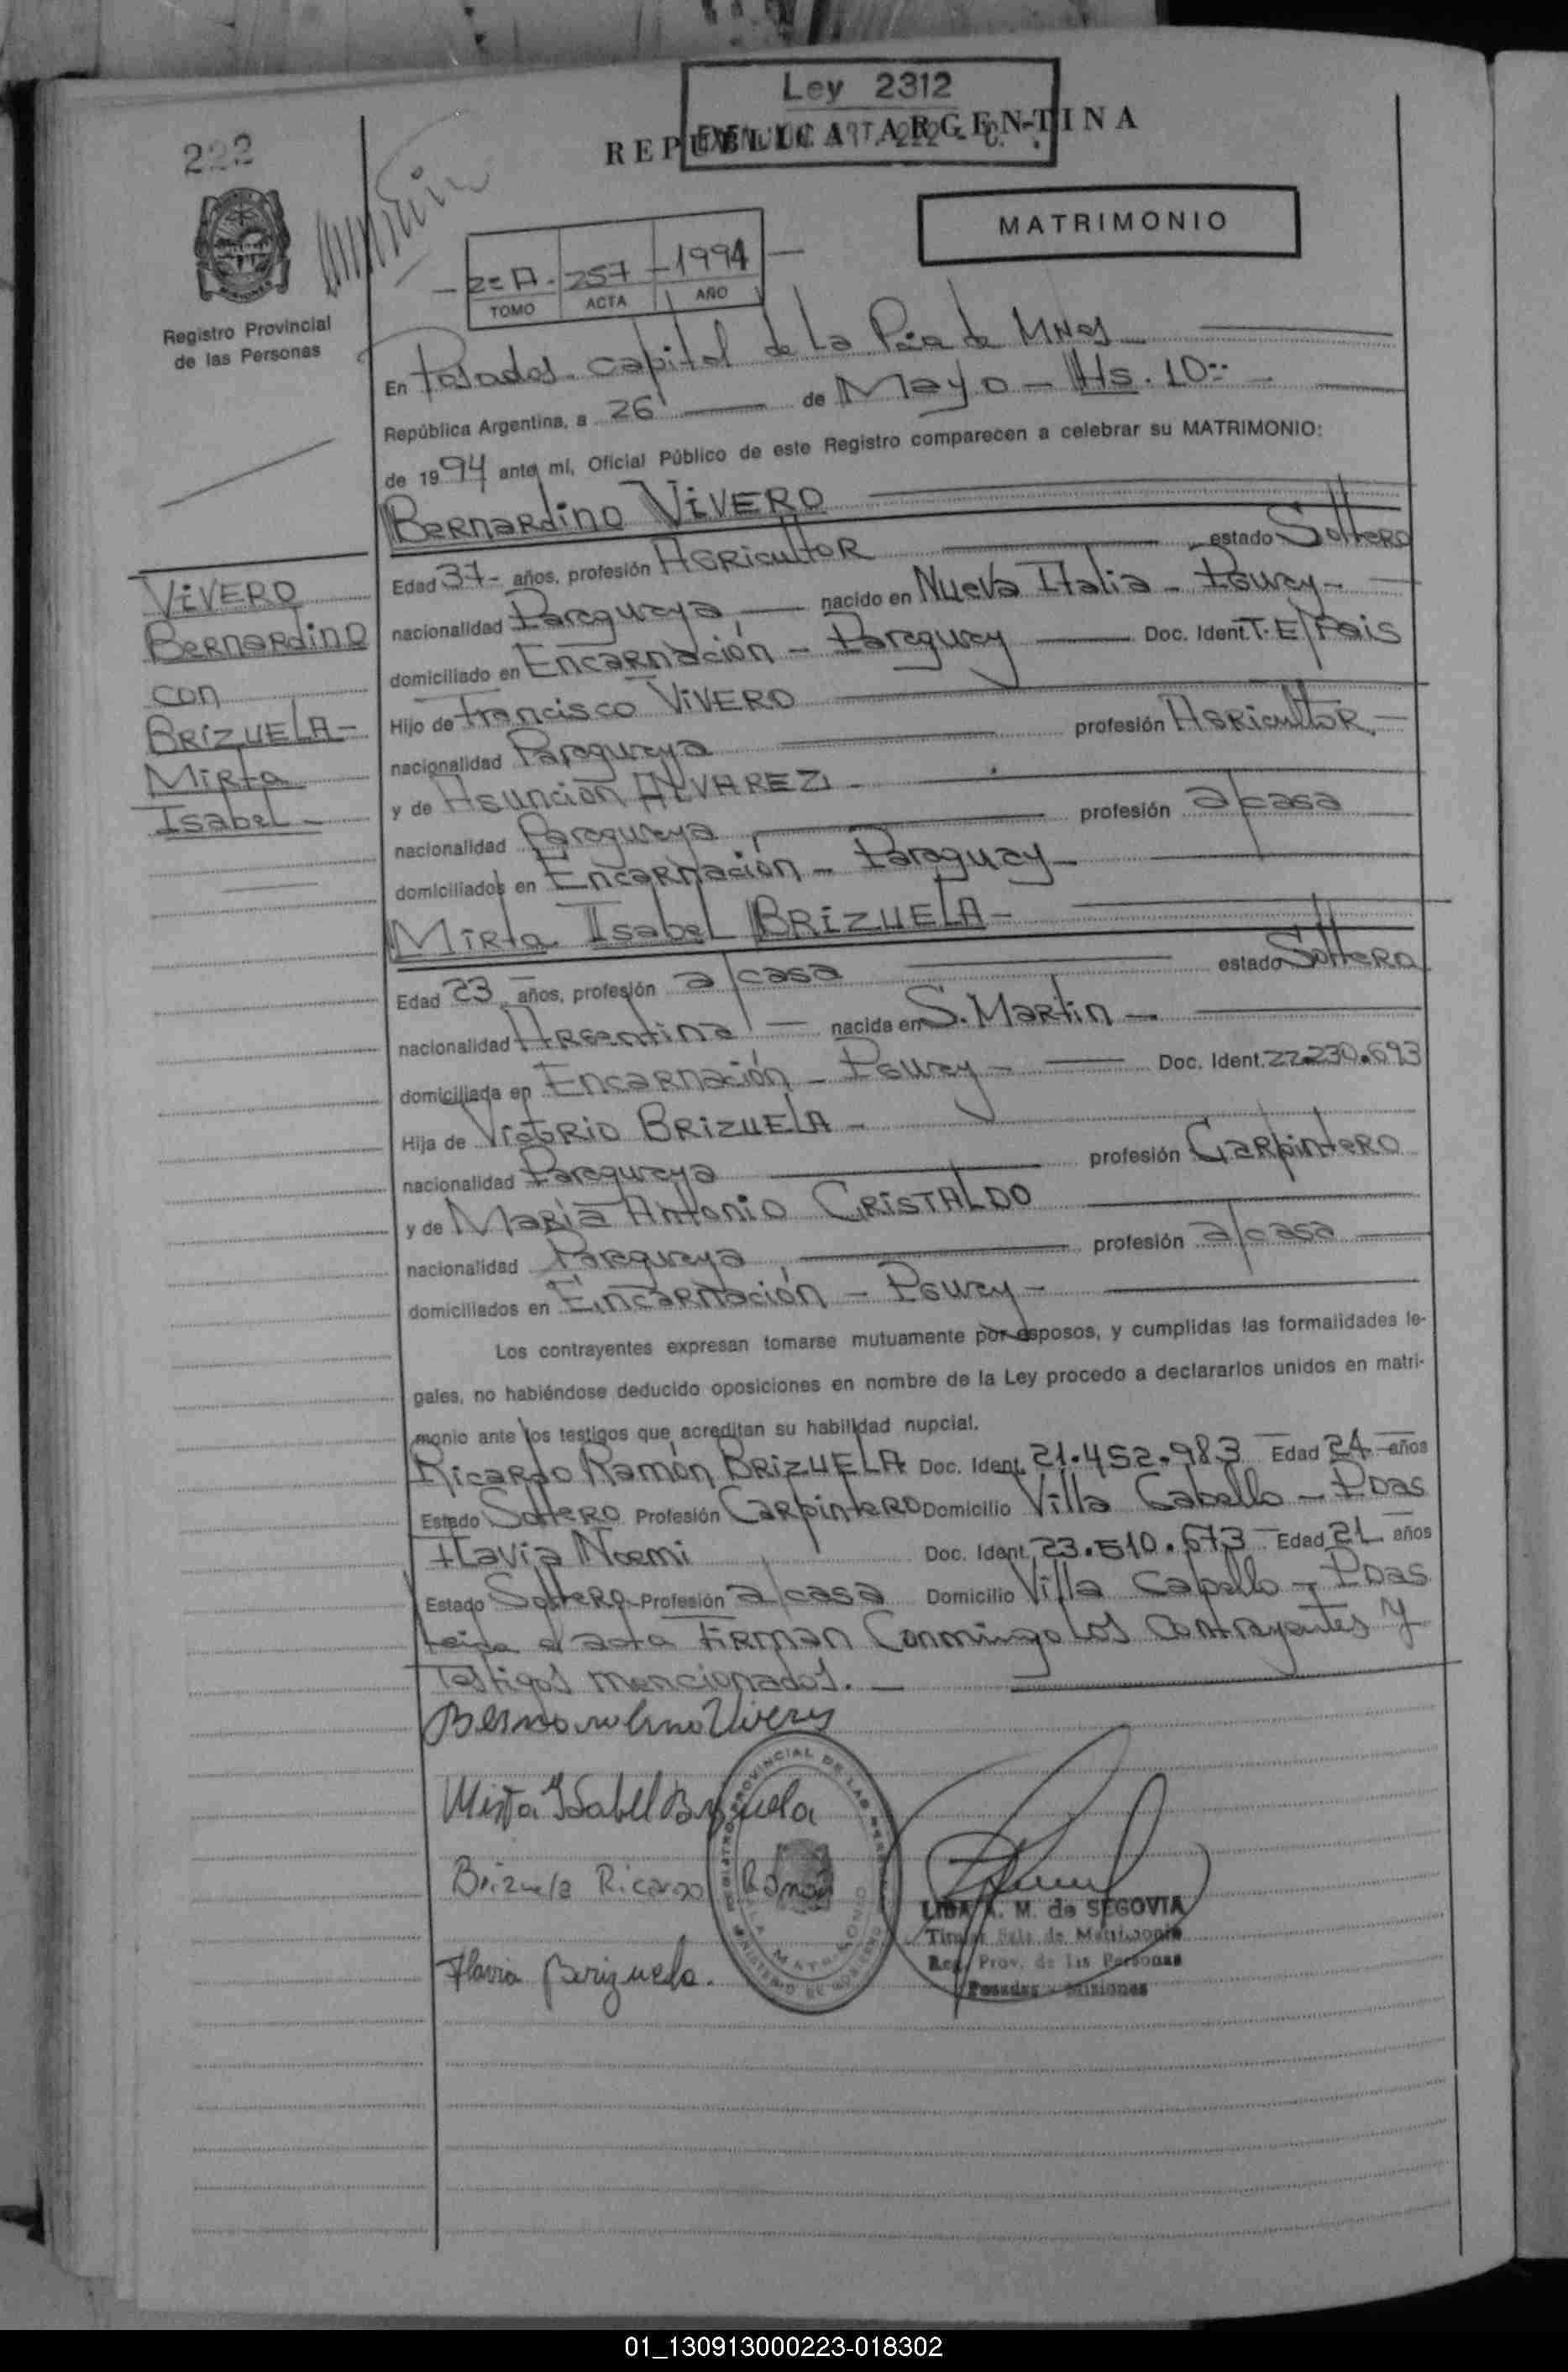 Ley 2312
REPUBLICA ARGENTINA
222
MATRIMONIO
2=A - 257 - 1994
TOMO ACTA AÑO
Registro Provincial
de las Personas
En Posadas capital de la Pcia de Mnes
República Argentina, a 26 de Mayo - Hs. 10=
de 1994 ante mí, Oficial Público de este Registro comparecen a celebrar su MATRIMONIO:
Bernardino VIVERO
VIVERO
Bernardino
con
BRIZUELA-
Mirta
Isabel-
Edad 37- años, profesión Agricultor estado Soltero
nacionalidad Paraguaya, nacido en Nueva Italia - Pguay-
domiciliado en Encarnación - Paraguay Doc. Ident. T.E/Pais
Hijo de Francisco VIVERO
nacionalidad Paraguaya profesión Agricultor.-
y de Asunción ALVAREZ -
nacionalidad Paraguaya profesión a/casa
domiciliados en Encarnación - Paraguay-
Mirta Isabel BRIZUELA-
Edad 23 años, profesión a/casa estado Soltera
nacionalidad Argentina - nacida en S. Martin -
domiciliada en Encarnación - Pguay - Doc. Ident. 22.230.693
Hija de Victorio BRIZUELA -
nacionalidad Paraguaya profesión Carpintero
y de Maria Antonia CRISTALDO
nacionalidad Paraguaya profesión a/casa
domiciliados en Encarnación - Pguay-
Los contrayentes expresan tomarse mutuamente por esposos, y cumplidas las formalidades le-
gales, no habiéndose deducido oposiciones en nombre de la Ley procedo a declararlos unidos en matri-
monio ante los testigos que acreditan su habilidad nupcial.
Ricardo Ramón BRIZUELA Doc. Ident. 21.452.983 Edad 24 años
Estado Soltero Profesión Carpintero Domicilio Villa Cabello - Pdas
Flavia Noemi Doc. Ident. 23.510.673 Edad 21 años
Estado Soltera Profesión a/casa Domicilio Villa Cabello - Pdas
Leída el acta firman conmigo los contrayentes y
Testigos mencionados. -
Bernardino Vivero
Mirta Isabel Brizuela
Brizuela Ricardo Ramón
Flavia Brizuela.
REGISTRO PROVINCIAL DE LAS PERSONAS
MINISTERIO DE GOBIERNO
LIDA A. M. de SEGOVIA
Titular Sala de Matrimonio
Reg. Prov. de las Personas
Posadas - Misiones
01_130913000223-018302